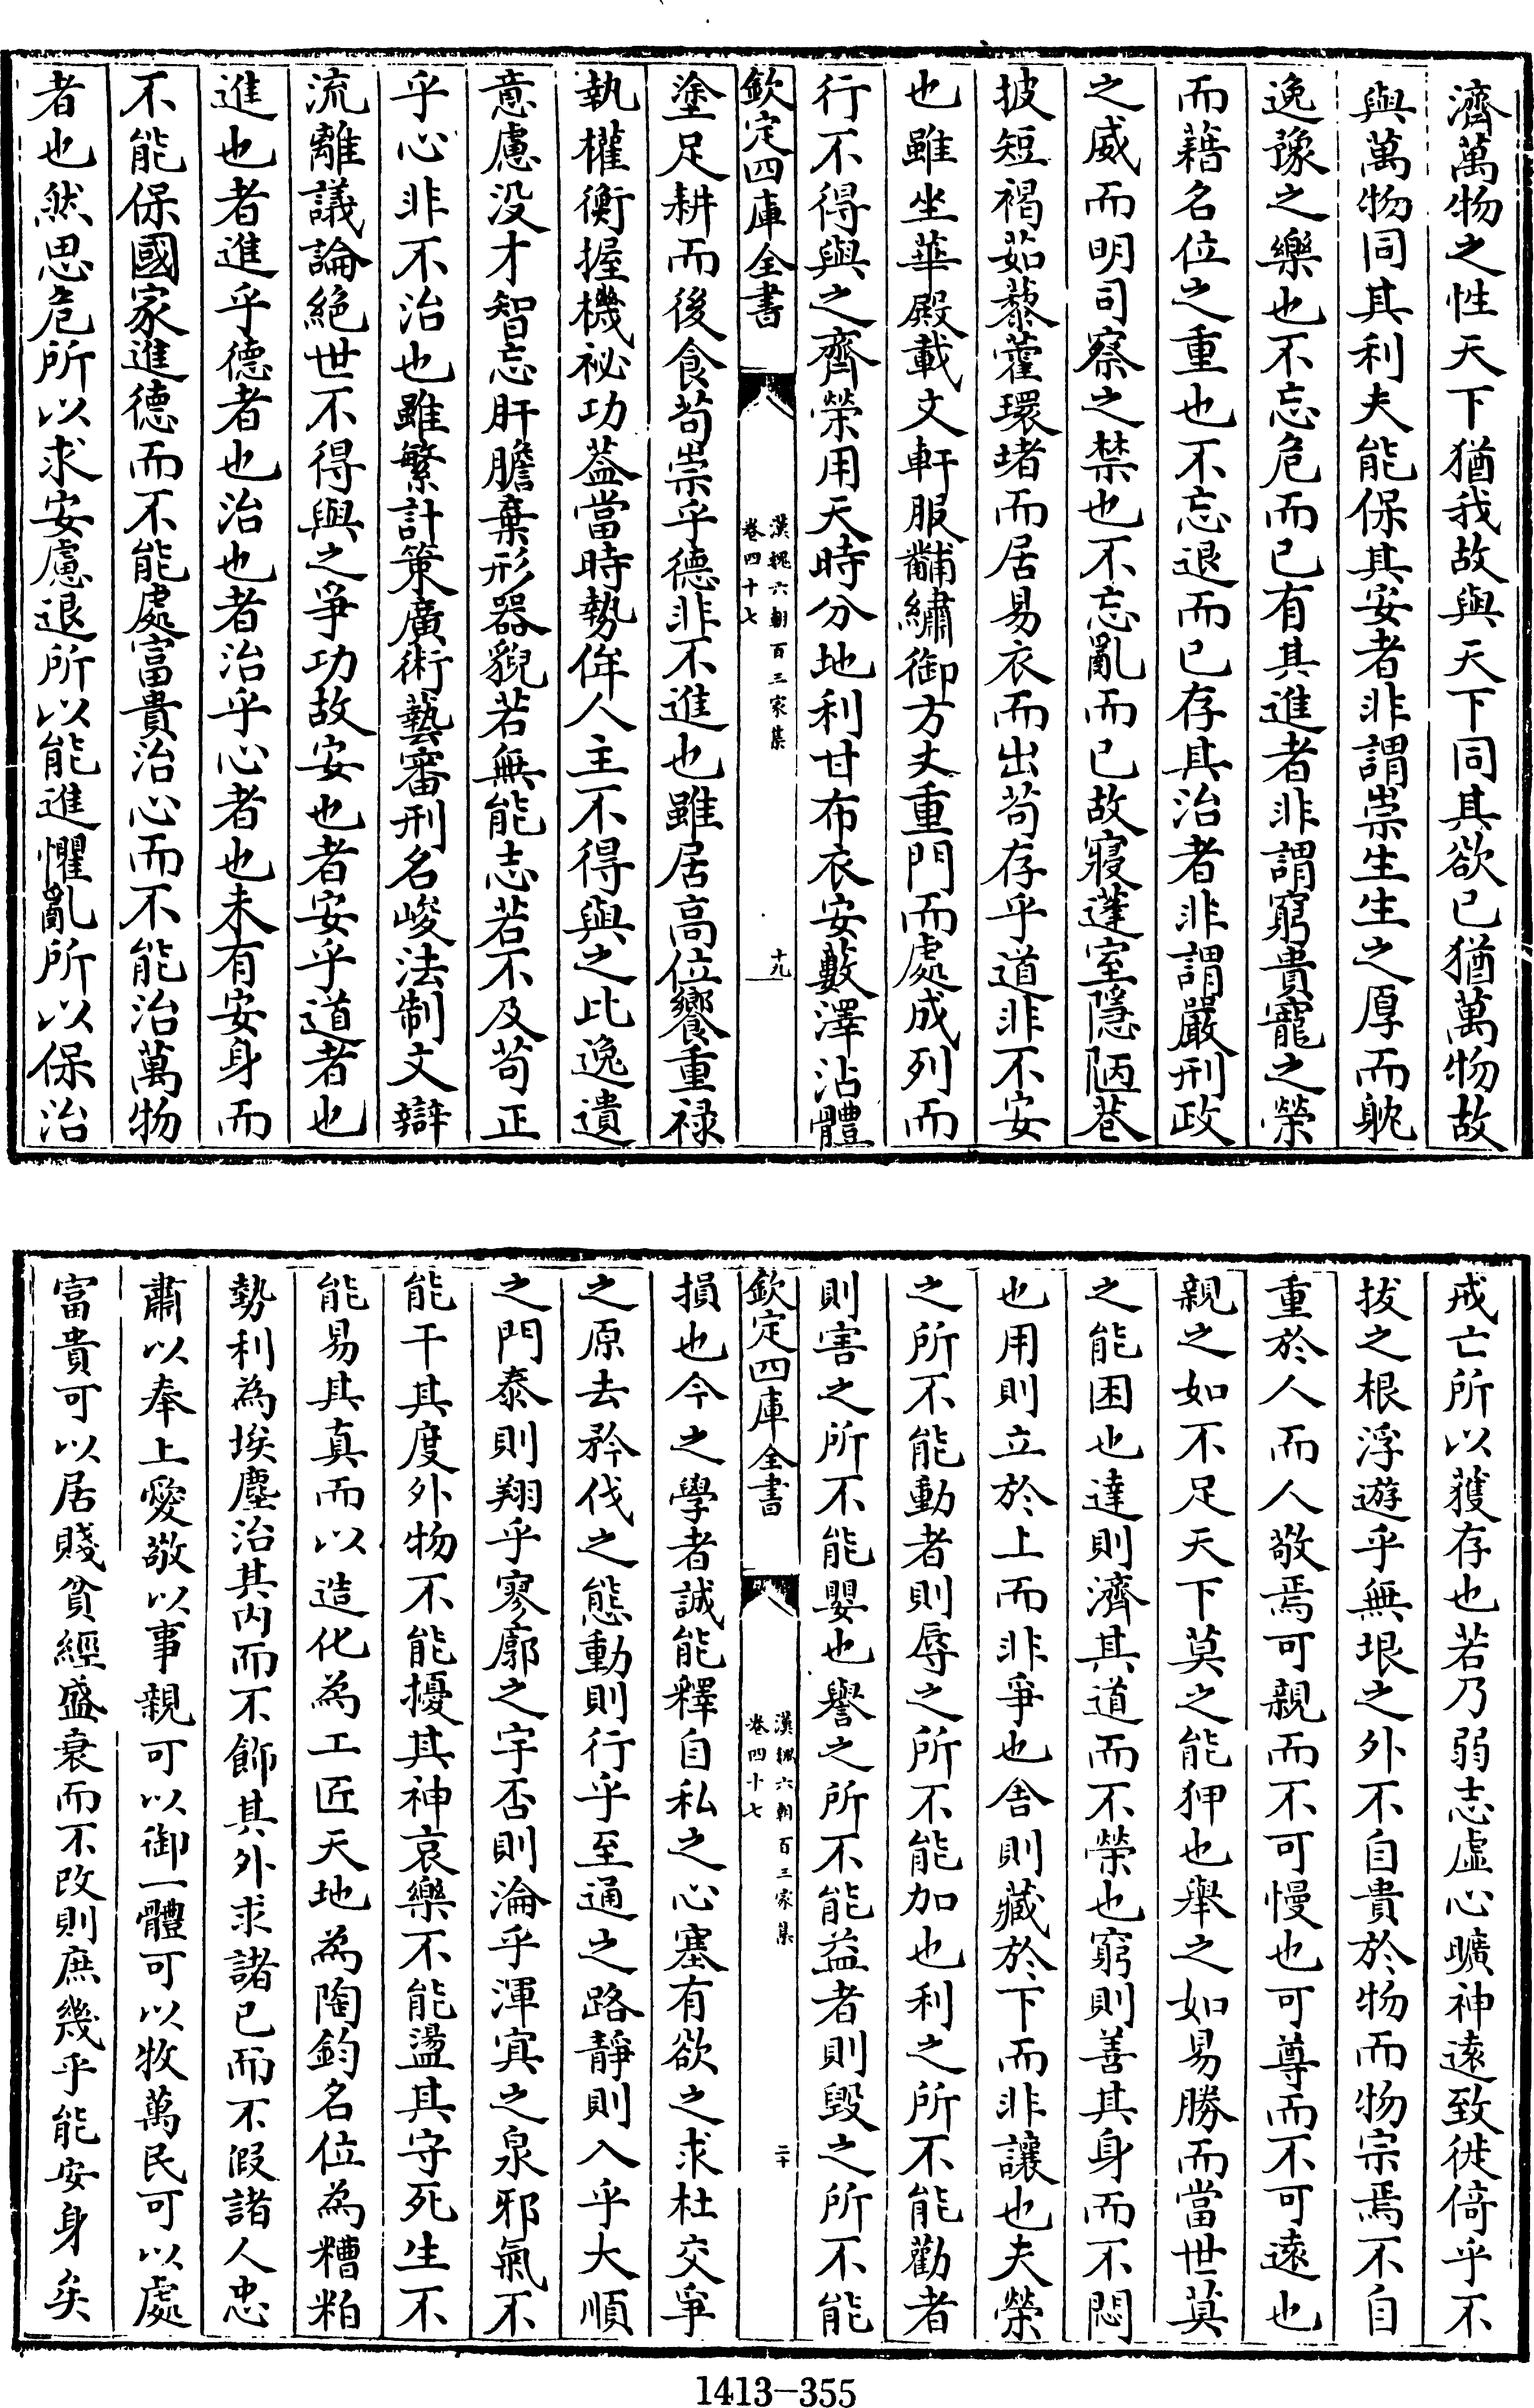 濟萬物之性天下猶我故與天下同其欲已猶萬物故
與萬物同其利夫能保其安者非謂崇生生之厚而躭
逸豫之樂也不忘危而已有其進者非謂窮貴寵之榮
而藉名位之重也不忘退而已存其治者非謂嚴刑政
之威而明司察之禁也不忘亂而已故寢蓬室隱陋巷
披短褐茹藜藿環堵而居易衣而出苟存乎道非不安
也雖坐華殿載文軒服黼繡御方丈重門而處成列而
行不得與之齊榮用天時分地利甘布衣安藪澤沾體
欽定四庫全書
漢魏六朝百三家集
卷四十七
十九
塗足耕而後食苟崇乎德非不進也雖居高位饗重祿
執權衡握機祕功葢當時勢侔人主不得與之比逸遺
意慮没才智忘肝膽棄形器貎若無能志若不及苟正
乎心非不治也雖繁計策廣術藝審刑名峻法制文辯
流離議論絕世不得與之爭功故安也者安乎道者也
進也者進乎德者也治也者治乎心者也未有安身而
不能保國家進德而不能處富貴治心而不能治萬物
者也然思危所以求安慮退所以能進懼亂所以保治
戒亡所以獲存也若乃弱志虚心曠神遠致徙倚乎不
拔之根浮遊乎無垠之外不自貴於物而物宗焉不自
重於人而人敬焉可親而不可慢也可尊而不可遠也
親之如不足天下莫之能狎也舉之如易勝而當世莫
之能困也達則濟其道而不榮也窮則善其身而不悶
也用則立於上而非爭也舍則藏於下而非讓也夫榮
之所不能動者則辱之所不能加也利之所不能勸者
則害之所不能嬰也譽之所不能益者則毀之所不能
欽定四庫全書
漢魏六朝百三家集
卷四十七
二十
損也今之學者誠能釋自私之心塞有欲之求杜交爭
之原去矜伐之態動則行乎至通之路靜則入乎大順
之門泰則翔乎寥廓之宇否則淪乎渾冥之泉邪氣不
能干其度外物不能擾其神哀樂不能盪其守死生不
能易其真而以造化為工匠天地為陶鈞名位為糟粕
勢利為埃塵治其内而不飾其外求諸已而不假諸人忠
肅以奉上愛敬以事親可以御一體可以牧萬民可以處
富貴可以居賤貧經盛衰而不改則庶幾乎能安身矣
1413-355